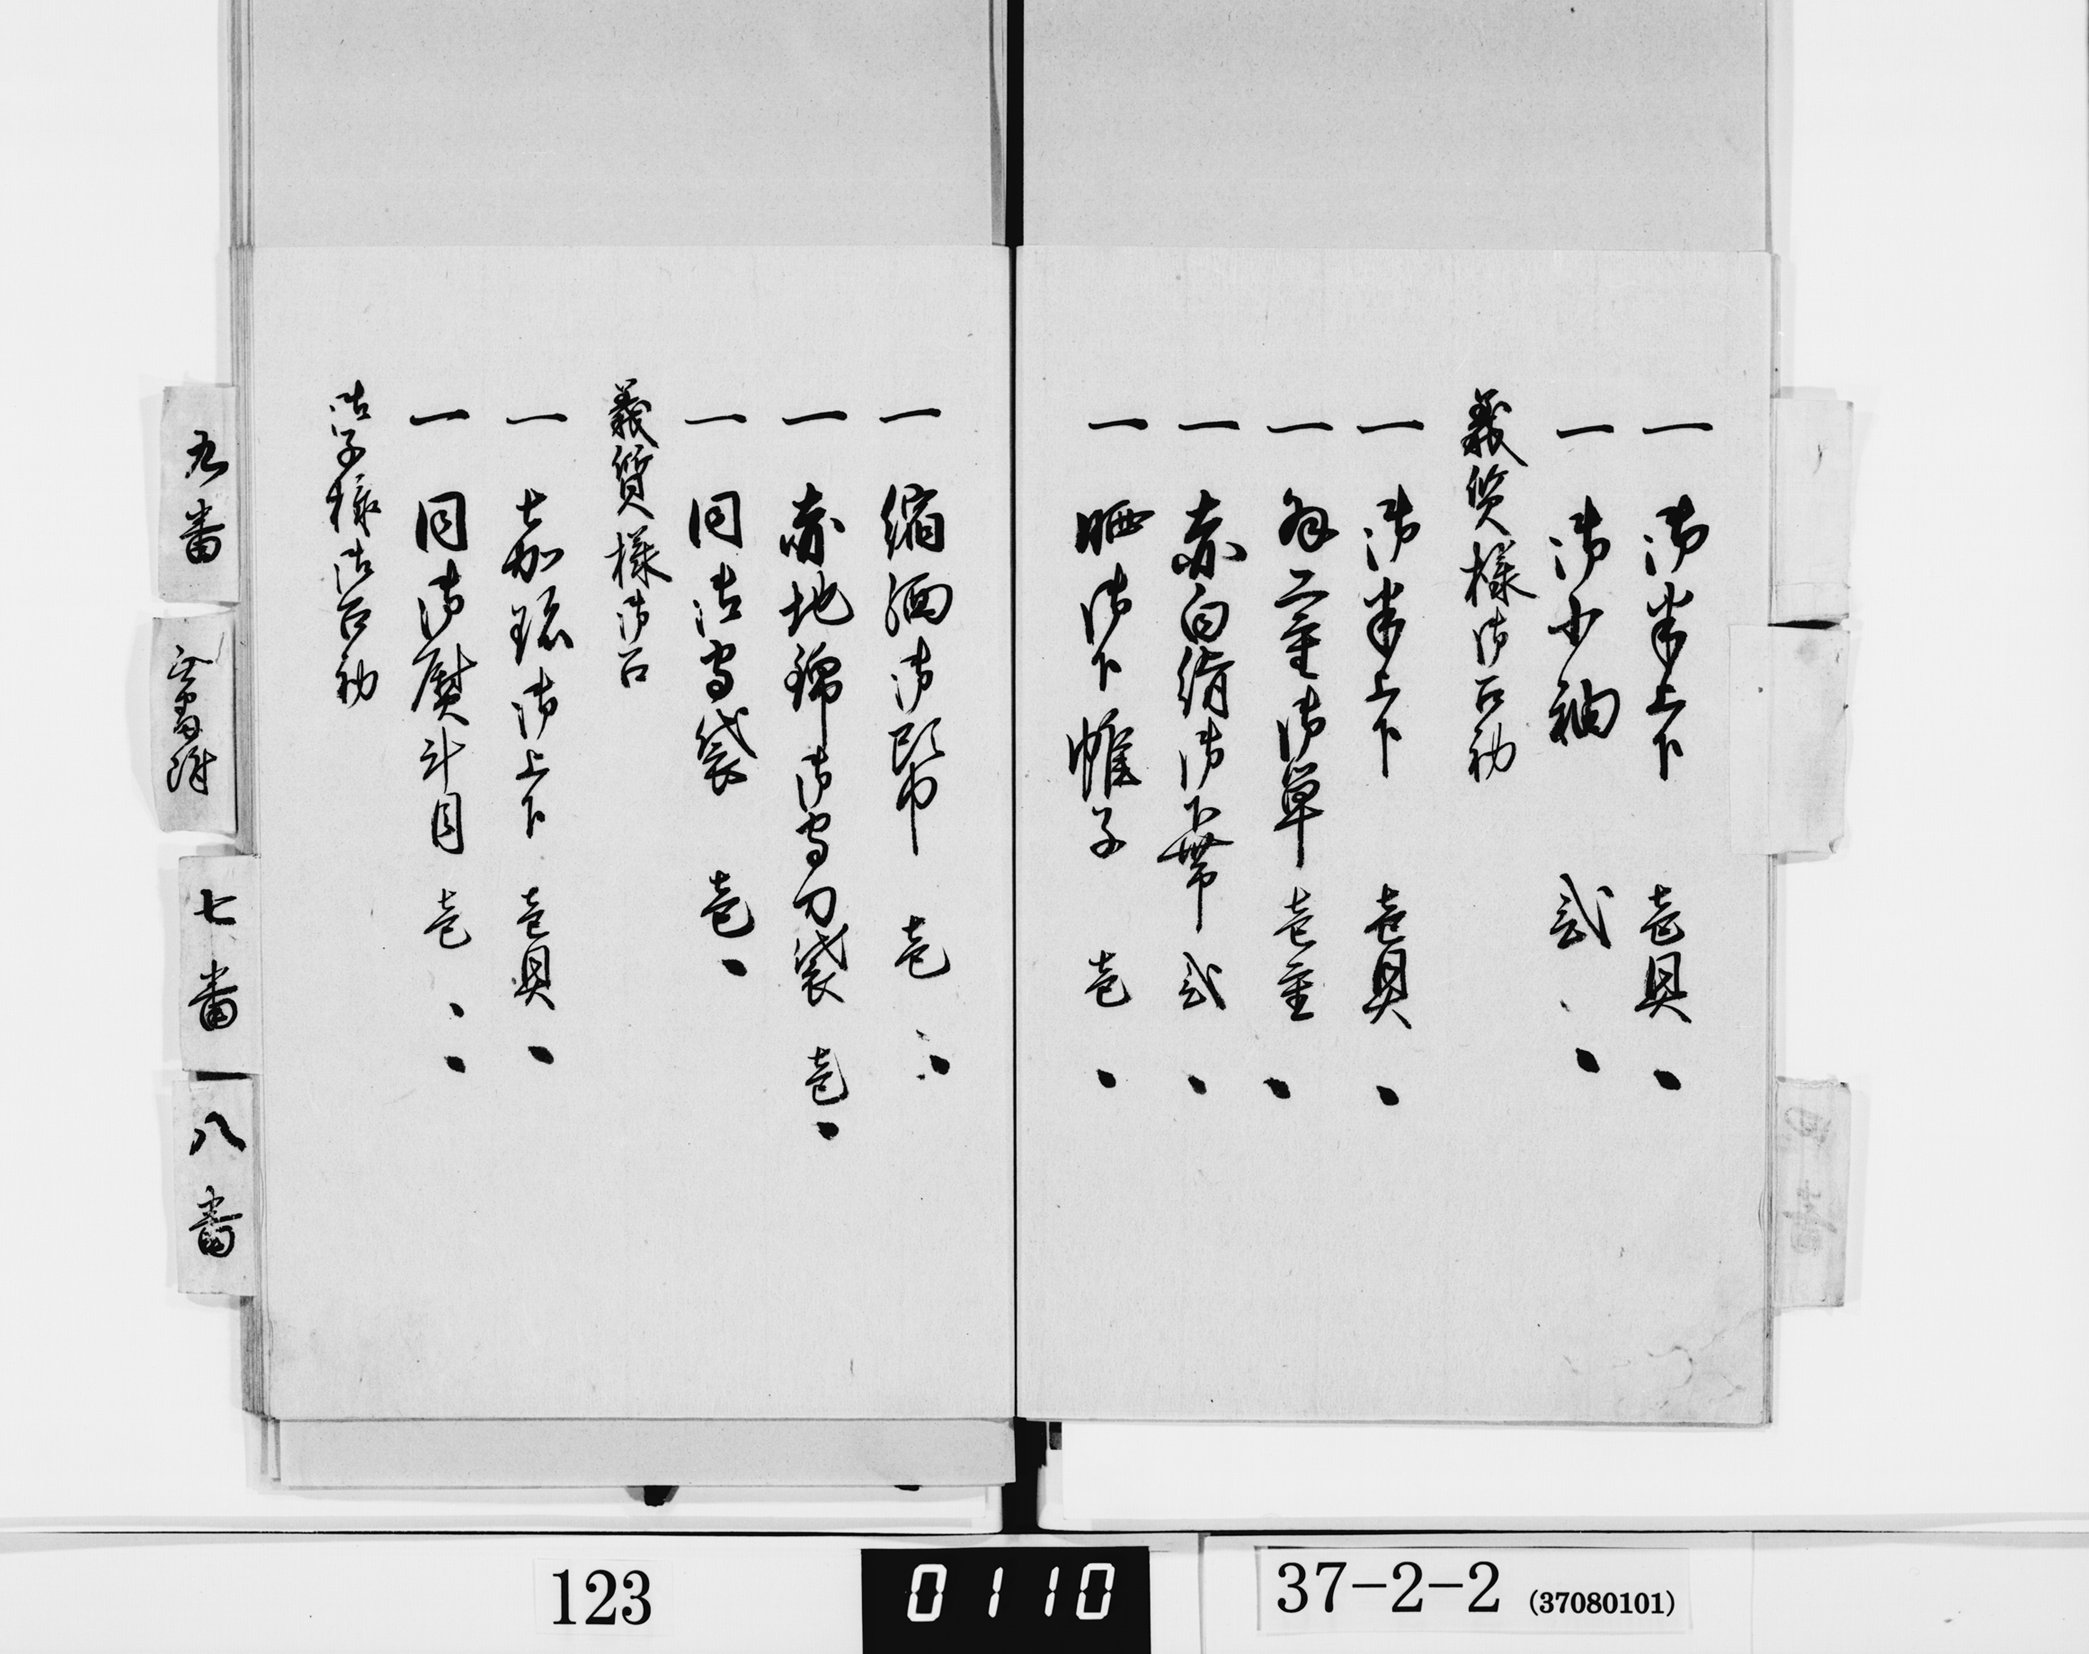 一 御半上下 壱具
一 御小袖 弐
義質様御召初
一 御半上下 壱具
一 羽二重御単 壱重
一 赤白絹御下帯 弐
一 晒御下帷子 壱
一 縮緬御頭巾 壱
一 赤地錦御守刀袋 壱
一 同御守袋 壱
義質様御召
一 七加琉御上下 壱具
一 同御熨斗目 壱
浩子様御召初
九番
七番
八番
123
0110
37-2-2 (37080101)